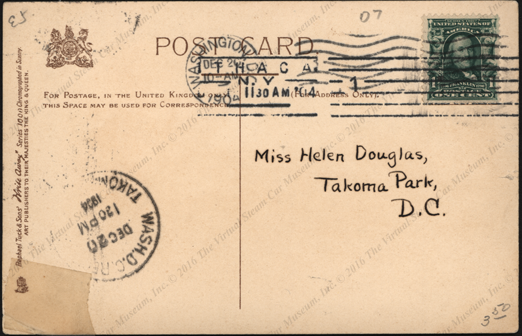 35
07
POST CARD
FOR POSTAGE, IN THE UNITED KINGDOM ONLY,
THIS SPACE MAY BE USED FOR CORRESPONDENCE
(FOR ADDRESS ONLY.)
WASHINGTON
DEC 20
10-AM
1904
N.Y.
1130 AM '04
1
UNITED STATES OF AMERICA
Miss Helen Douglas,
Takoma Park,
D.C.
WASH. D.C.
TAKOMA
DEC 20
130 PM
1904
Raphael Tuck & Sons' "Write Away" Series 1000 Chromographed in Saxony.
ART PUBLISHERS TO THEIR MAJESTIES THE KING & QUEEN.
© 2016 The Virtual Steam Car Museum, Inc.
3.50